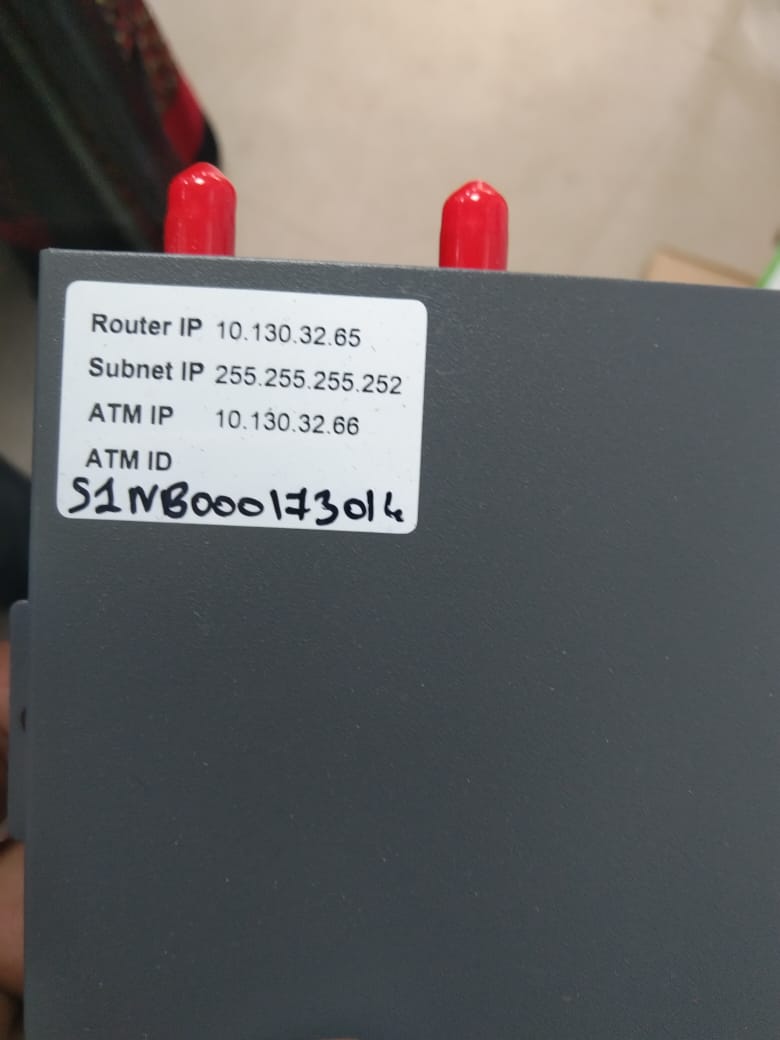 Router IP 10.130.32.65
Subnet IP 255.255.255.252
ATM IP 10.130.32.66
ATM ID
S1NB000173014